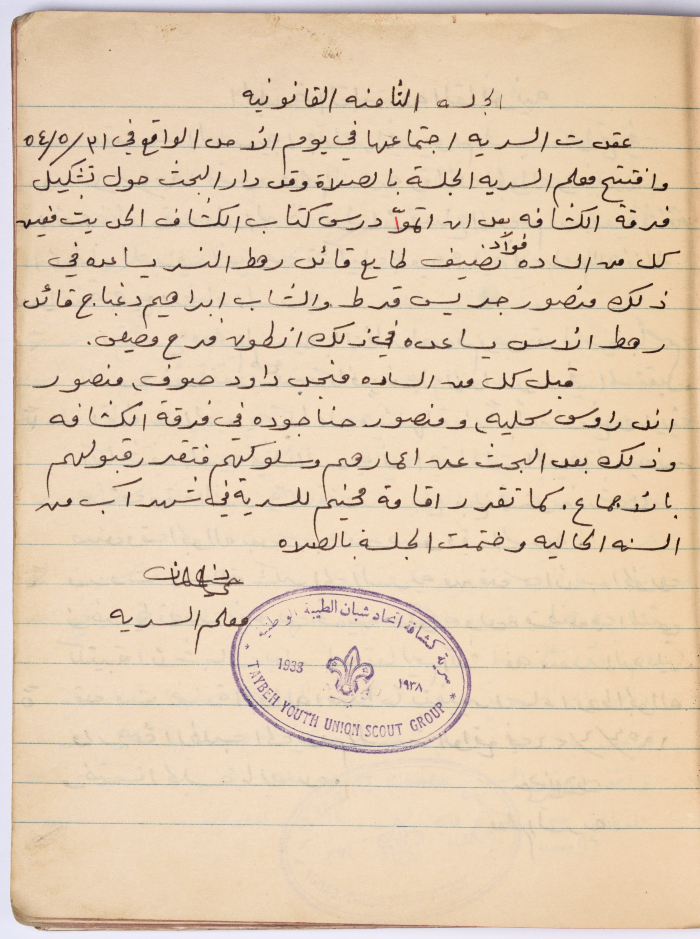 الجلسه الثامنه القانونيه
عقدت السريه اجتماعها في يوم الأحد الواقع في ٣١/٥/٥٤
وافتتح معلم السريه الجلسة بالصلاة وقد دار البحث حول تشكيل
فرقة الكشافه بعد ان اتموّا درس كتاب الكشاف الحديث فعين
كل من الساده فؤاد نصيف طايع قائد رهط النسر يساعده في
ذلك منصور جريس قرط والشاب ابراهيم دغباج قائد
رهط الأسد يساعده في ذلك انطون فرح
قبل كل من الساده منجد داود صوف، منصور
اندراوس سحليه، ومنصور حنا جوده في فرقة الكشافه
وذلك بعد البحث عن اعمارهم وسلوكهم فتقرر قبولهم
بالأجماع. كما تقرر اقامة مخيم للسرية في شهر آب من
السنه الحاليه وختمت الجلسة بالصلاه
معلم السريه
سرية كشافة اتحاد شبان الطيبة الوطنيه
1938 ١٩٣٨
* TAYBEH YOUTH UNION SCOUT GROUP *